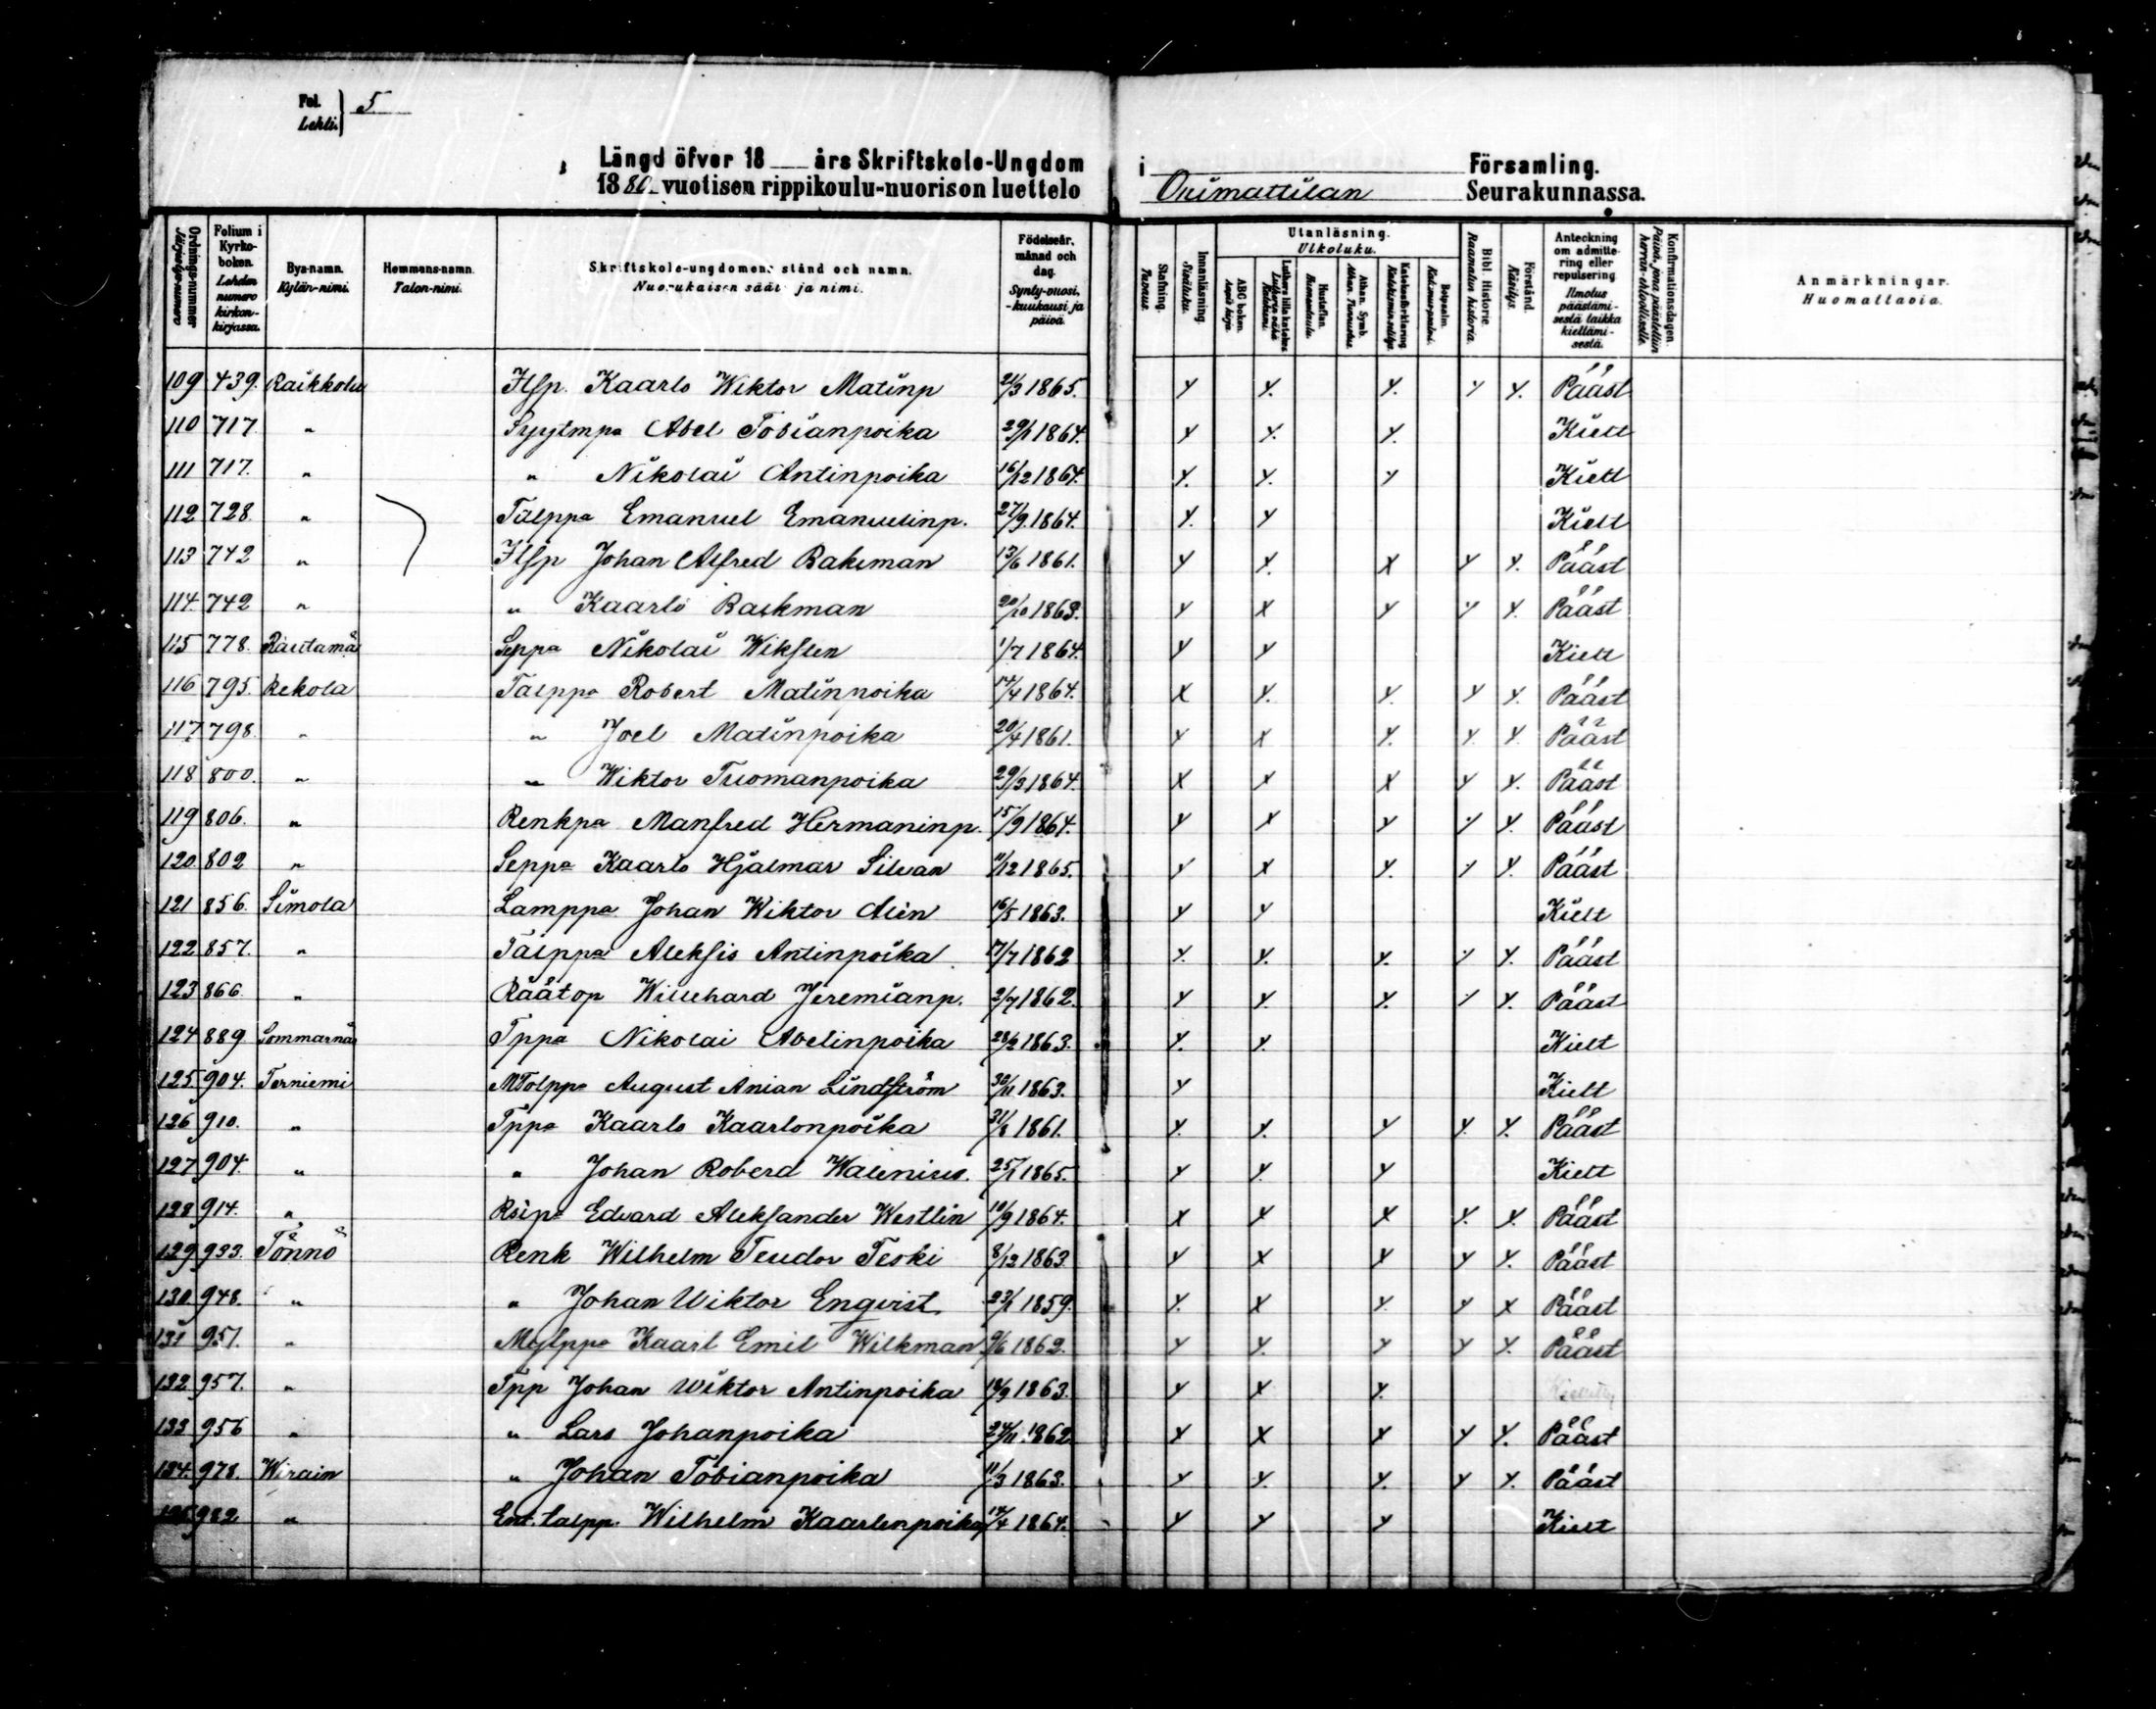 Fol. 5.
Lehti.
Längd öfver 18 års Skriftskole-Ungdom i Församling.
1880 vuotisen rippikoulu-nuorison luettelo Orimattilan Seurakunnassa.
Ordnings-nummer Järjestys-numero
Folium i Kyrko-boken. Lehden numero kirkon-kirjassa.
Bys-namn. Kylän-nimi.
Hemmans-namn. Talon-nimi.
Skriftskole-ungdomens stånd och namn. Nuorukaisen sääty ja nimi.
Födelseår, månad och dag. Synty-vuosi, -kuukausi ja päivä.
Stafning. Tavaus.
Innanläsning. Sisäluku.
Utanläsning. Ulkoluku.
ABC boken. Aapis kirja.
Luthers lilla kateches Lutherin vähä Katkismi.
Hustaflan. Huoneentaulu.
Athan. Symb. Athan. Tunnustus.
Katechesförklaring Katekismin selitys.
Botpsalm. Kat.mus-psalmi.
Bibl. Historie. Raamatun historia.
Förstånd. Käsitys.
Anteckning om admitte-ring eller repulsering. Ilmoitus päästämi-sestä taikka kieltämi-sestä.
Konfirmationsdagen. Päivä, jona päästettiin herran-ehtoolliselle.
Anmärkningar. Huomattavia.
109 439. Raikkola Itsp. Kaarlo Wiktor Matinp 21/3 1865. y y. y. y y. Pääst
110 717. " Syytmpa Abel Tobianpoika 29/1 1864. y y. y. Kielt
111 717. " " Nikolai Antinpoika 16/12 1864. y. y. y Kielt
112 728. " Talppa Emanuel Emanuelinp. 27/9 1864. y. y Kielt
113 742 " Itsp Johan Alfred Bakman 13/6 1861. y x. x y y. Pääst
114 742 " " Kaarlo Backman 20/10 1863. y x y y y. Pääst
115 778. Rautamä Seppa Nikolai Wiksten 1/7 1864. y y Kielt
116 795. Rekola Talppa Robert Matinpoika 14/4 1864. x y. y. y y. Pääst
117 798. " " Joel Matinpoika 20/4 1861. y x y. y. y Pääst
118 800. " " Wiktor Tuomanpoika 29/3 1864. x x x y y. Pääst
119 806. " Renkpa Manfred Hermaninp. 15/9 1864. y x y y y. Pääst
120 802 " Seppa Kaarlo Hjalmar Silvan 11/12 1865. y x y. y y. Pääst
121 856. Simola Lamppa Johan Wiktor Alén 16/5 1863. y y Kielt
122 857. " Talppa Aleksis Antinpoika 17/7 1862 y. y. y. y y. Pääst
123 866. " Räätop Willehard Jeremianp. 2/7 1862. y y. y. y y. Pääst
124 889 Sommarnä Tppa Nikolai Abelinpoika 28/2 1863. y. y. Kielt
125 904. Terniemi MTolppa August Anian Lindström 30/11 1863. y Kielt
126 910. " Tppa Kaarlo Kaarlonpoika 31/8 1861. y. y. y y. y. Pääst
127 904. " " Johan Roberd Walenius. 25/1 1865. y y. y Kielt
128 914. " Rsipa Edvard Aleksander Westlin 10/9 1864. x y x y. y. Pääst
129 933. Tönnö Renk Wilhelm Teudor Teski 8/12 1863. y x y y y. Pääst
130 948. " " Johan Wiktor Engvist 23/1 1859. y. x y. y x Pääst
131 951. " Kaarl Emil Wilkman 9/6 1862. y y. y y y. Pääst
132 957. " Tpp Johan Wiktor Antinpoika 18/9 1863. y x y.
133 956 " " Lars Johanpoika 24/11 1862 y x y y y. Pääst
134. 978. Wirain " Johan Tobianpoika 11/3 1863. y y. y. y y. Pääst
135 982 " Ent. talpp. Wilhelm Kaarlenpoika 14/4 1864. y y y Kielt